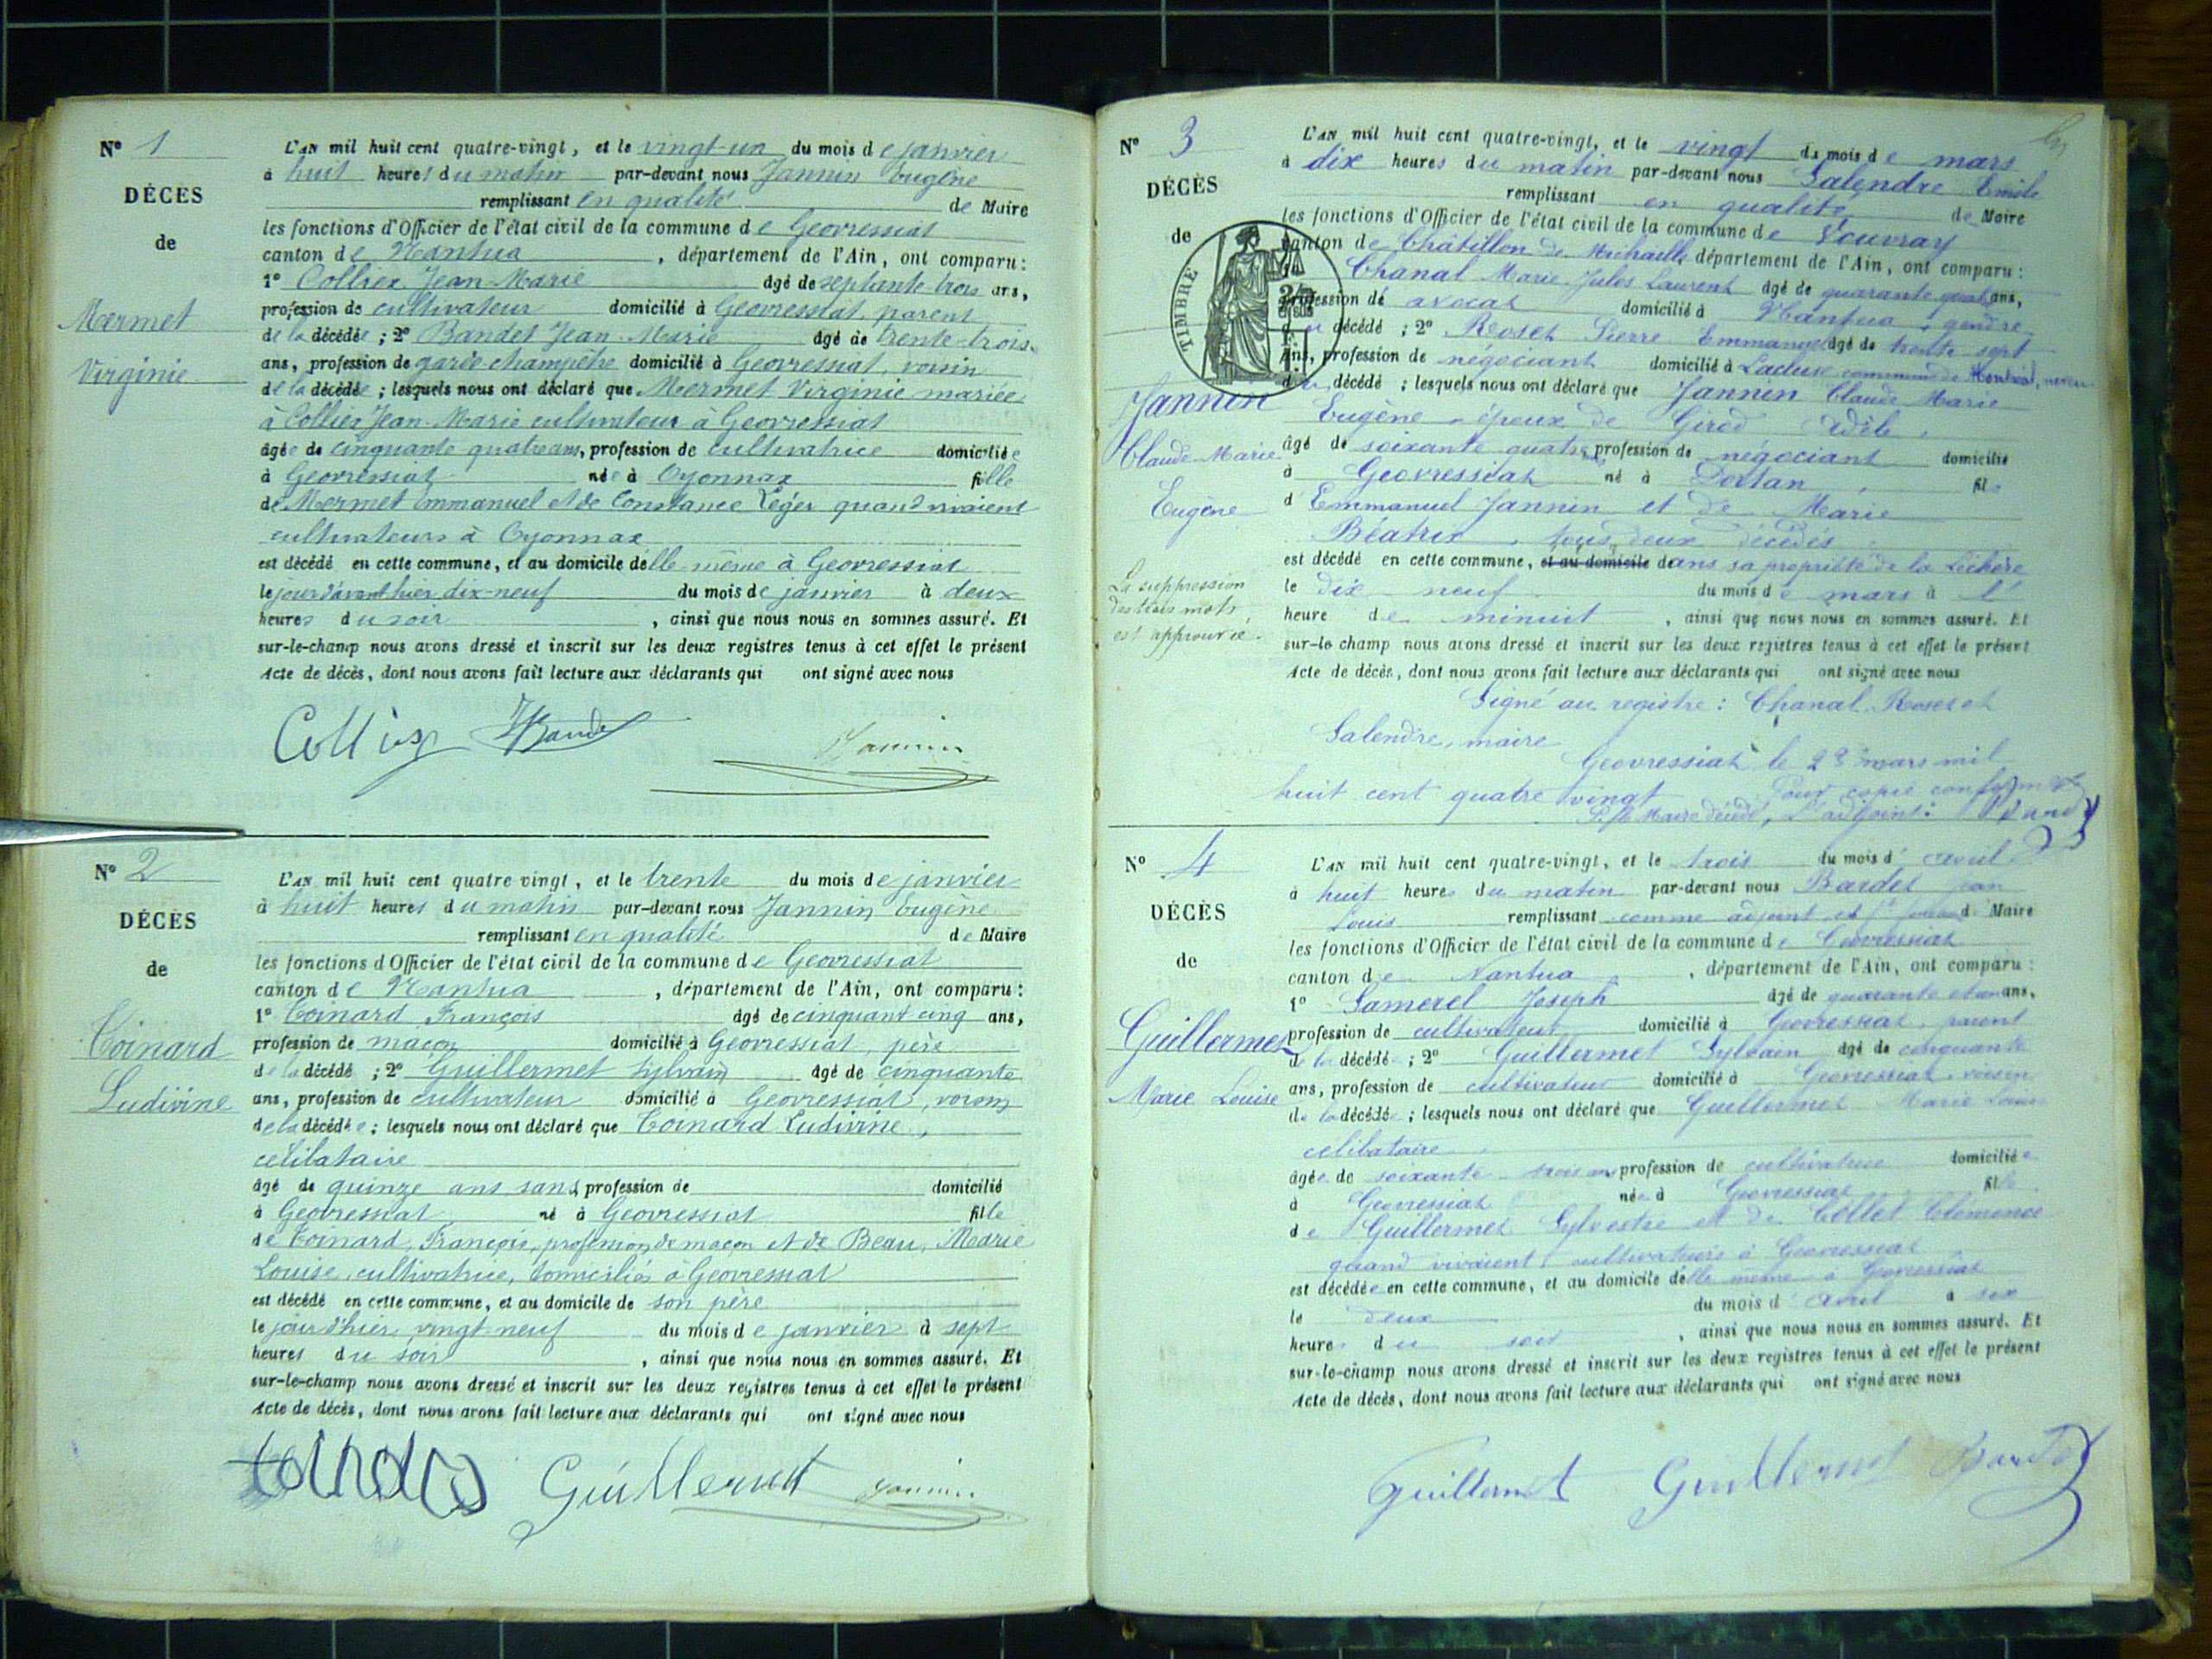 N° 1
DÉCÈS
de
Mermet
Virginie
L'AN mil huit cent quatre-vingt, et le vingt-un du mois de janvier
à huit heures du matin par-devant nous Jannin Eugène
remplissant en qualité de Maire
les fonctions d'Officier de l'état civil de la commune de Geovressiat
canton de Nantua, département de l'Ain, ont comparu :
1° Collier Jean-Marie âgé de septante-trois ans,
profession de cultivateur domicilié à Geovressiat, parent
de la décédée ; 2° Bandet Jean-Marie âgé de trente-trois
ans, profession de garde-champêtre domicilié à Geovressiat, voisin
de la décédée ; lesquels nous ont déclaré que Mermet Virginie mariée
à Collier Jean-Marie cultivateur à Geovressiat
âgée de cinquante quatre ans, profession de cultivatrice domiciliée
à Geovressiat née à Oyonnax fille
de Mermet Emmanuel et de Constance Léger quand vivaient
cultivateurs à Oyonnax
est décédé en cette commune, et au domicile d'elle-même à Geovressiat
le jour d'avant hier dix-neuf du mois de janvier à deux
heures du soir, ainsi que nous nous en sommes assuré. Et
sur-le-champ nous avons dressé et inscrit sur les deux registres tenus à cet effet le présent
Acte de décès, dont nous avons fait lecture aux déclarants qui ont signé avec nous
Jannin
N° 2
DÉCÈS
de
Coinard
Ludivine
L'AN mil huit cent quatre vingt, et le trente du mois de janvier
à huit heures du matin par-devant nous Jannin Eugène
remplissant en qualité de Maire
les fonctions d'Officier de l'état civil de la commune de Geovressiat
canton de Nantua, département de l'Ain, ont comparu :
1° Coinard François âgé de cinquant cinq ans,
profession de maçon domicilié à Geovressiat, père
de la décédé ; 2° Guillermet Sylvain âgé de cinquante
ans, profession de cultivateur domicilié à Geovressiat, voisin
de la décédée ; lesquels nous ont déclaré que Coinard Ludivine,
célibataire
âgé de quinze ans sans profession de domicilié
à Geovressiat né à Geovressiat fille
de Coinard, François, profession de maçon et de Beau, Marie
Louise, cultivatrice, domiciliés à Geovressiat
est décédé en cette commune, et au domicile de son père
le jour d'hier vingt-neuf du mois de janvier à sept
heures du soir, ainsi que nous nous en sommes assuré. Et
sur-le-champ nous avons dressé et inscrit sur les deux registres tenus à cet effet le présent
Acte de décès, dont nous avons fait lecture aux déclarants qui ont signé avec nous
Guillermet Jannin
N° 3
DÉCÈS
de
TIMBRE
Jannin
Claude Marie
Eugène
La suppression
des trois mots
est approuvée.
L'AN mil huit cent quatre-vingt, et le vingt du mois de mars
à dix heures du matin par-devant nous Salendre Emile
remplissant en qualité de Maire
les fonctions d'Officier de l'état civil de la commune de Vouvray
canton de Châtillon de Michaille, département de l'Ain, ont comparu :
Chanal Marie Jules Laurent âgé de quarante quat ans,
profession de avocat domicilié à Nantua, gendre
du décédé ; 2° Roset Pierre Emmanuel âgé de trente sept
ans, profession de négociant domicilié à Lacluse commune de Montréal, neveu
du décédé ; lesquels nous ont déclaré que Jannin Claude Marie
Eugène, époux de Girod Adèle,
âgé de soixante quatre profession de négociant domicilié
à Geovressiat né à Dortan, fils
d'Emmanuel Jannin et de Marie
Béatrix, tous deux décédés
est décédé en cette commune, et au domicile dans sa propriété de la Léchère
le dix-neuf du mois de mars à l'
heure de minuit, ainsi que nous nous en sommes assuré. Et
sur-le champ nous avons dressé et inscrit sur les deux registres tenus à cet effet le présent
Acte de décès, dont nous avons fait lecture aux déclarants qui ont signé avec nous
Signé au registre : Chanal Roset et
Salendre, maire
Geovressiat le 28 mars mil
huit cent quatre vingt Pour copie conforme
P. le Maire décédé, L'adjoint :
N° 4
DÉCÈS
de
Guillermet
Marie Louise
L'AN mil huit cent quatre-vingt, et le trois du mois d'avril
à huit heures du matin par-devant nous Bardet Jean
Louis remplissant comme adjoint et de Maire
les fonctions d'Officier de l'état civil de la commune de Geovressiat
canton de Nantua, département de l'Ain, ont comparu :
1° Samerel Joseph âgé de quarante et un ans,
profession de cultivateur domicilié à Geovressiat, parent
de la décédé ; 2° Guillermet Sylvain âgé de cinquante
ans, profession de cultivateur domicilié à Geovressiat voisin
de la décédé ; lesquels nous ont déclaré que Guillermet Marie Louise
célibataire
âgée de soixante-trois ans profession de cultivatrice domiciliée
à Geovressiat née à Geovressiat fille
de Guillermet Sylvestre et de Collet Clémence
quand vivaient cultivateurs à Geovressiat
est décédée en cette commune, et au domicile d'elle même à Geovressiat
le deux du mois d'avril à six
heures du soir, ainsi que nous nous en sommes assuré. Et
sur-le-champ nous avons dressé et inscrit sur les deux registres tenus à cet effet le présent
Acte de décès, dont nous avons fait lecture aux déclarants qui ont signé avec nous
Guillermet Guillermet Bardet